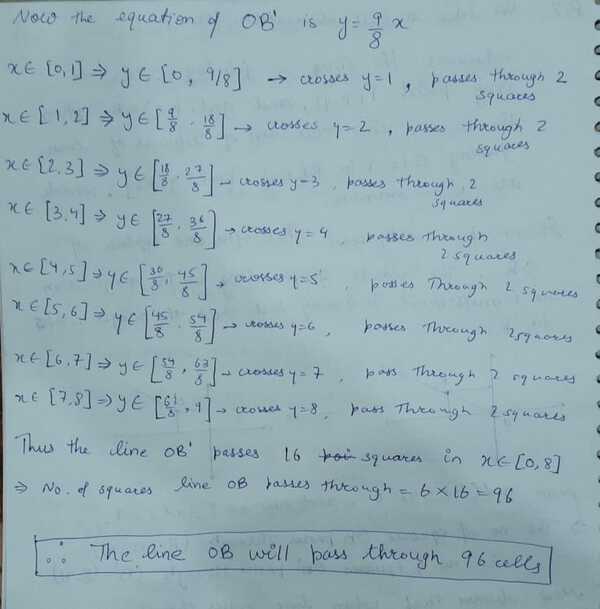 Now the equation of OB' is y = 9/8 x
x ∈ [0,1] ⇒ y ∈ [0, 9/8] → crosses y=1, passes through 2 squares
x ∈ [1,2] ⇒ y ∈ [9/8, 18/8] → crosses y=2, passes through 2 squares
x ∈ [2,3] ⇒ y ∈ [18/8, 27/8] → crosses y=3, passes through 2 squares
x ∈ [3,4] ⇒ y ∈ [27/8, 36/8] → crosses y=4 passes through 2 squares
x ∈ [4,5] ⇒ y ∈ [36/8, 45/8] → crosses y=5, passes through 2 squares
x ∈ [5,6] ⇒ y ∈ [45/8, 54/8] → crosses y=6, passes through 2 squares
x ∈ [6,7] ⇒ y ∈ [54/8, 63/8] → crosses y=7, pass through 2 squares
x ∈ [7,8] ⇒ y ∈ [61/8, 9] → crosses y=8, pass through 2 squares
Thus the line OB' passes 16 squares in x ∈ [0,8]
⇒ No. of squares line OB passes through = 6 × 16 = 96
∴ The line OB will pass through 96 cells